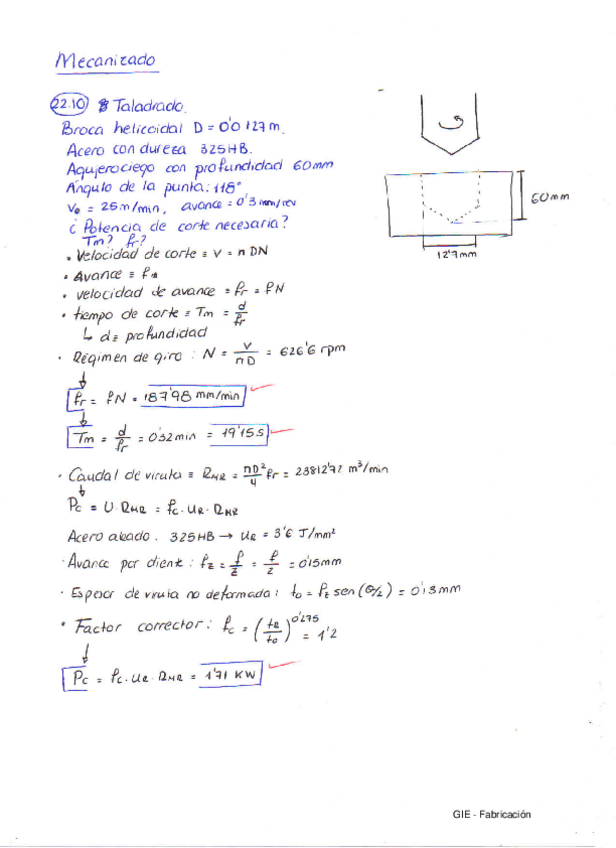 Mecanizado
22.10 Taladrado.
Broca helicoidal D = 0'0127m.
Acero con dureza 325HB.
Agujero ciego con profundidad 60mm
Ángulo de la punta: 118°
= 25m/min, avance = 0'3 mm/rev
¿ Potencia de corte necesaria?
Tm? fr?
• Velocidad de corte = v = πDN
• Avance = f
• velocidad de avance = fr = fN
• tiempo de corte = Tm = d/fr
↳ d = profundidad
• Régimen de giro : N = v/πD = 626'6 rpm
↓
fr = fN = 187'98 mm/min
↓
Tm = d/fr = 0'32 min = 19'15 s
• Caudal de viruta = RMR = πD²/4 fr = 23812'72 m³/min
↓
Pc = U · RMR = fc · UR · RMR
Acero aleado. 325HB → UR = 3'6 J/mm²
• Avance por diente : fz = f/z = f/2 = 0'15mm
• Espesor de viruta no deformada : to = fz sen (θ/2) = 0'13mm
• Factor corrector : fc = (tR/to)^0'275 = 1'2
↓
Pc = fc · UR · RMR = 1'71 KW
60mm
12'7mm
GIE - Fabricación